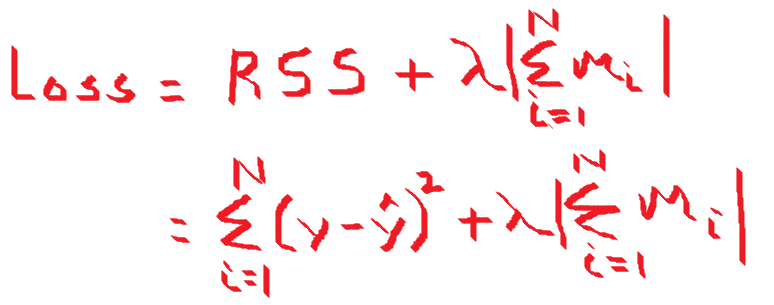 Loss = RSS + λ|∑_{i=1}^{N} m_i|
= ∑_{i=1}^{N} (y - ŷ)² + λ|∑_{i=1}^{N} m_i|